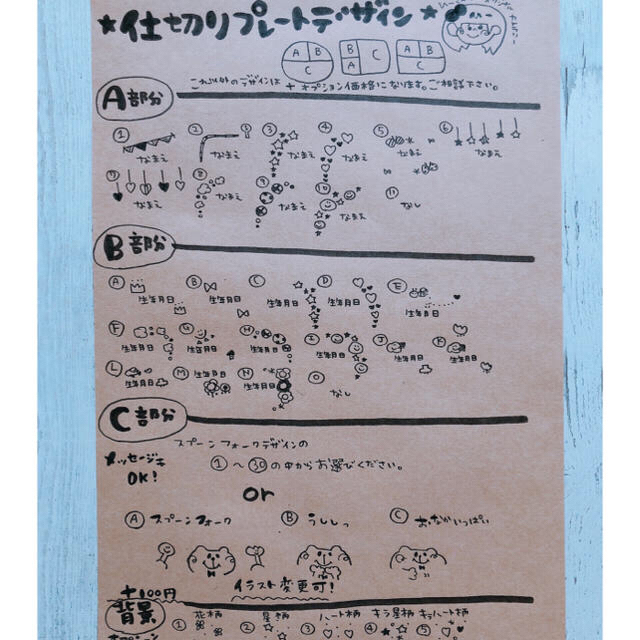 ★仕切りプレートデザイン★
A B C
B A C
A B C
これ以外のデザインは + オプション価格になります。ご相談下さい。
A部分
① ② ③ ④ ⑤ ⑥
なまえ なまえ なまえ なまえ なまえ なまえ
⑦ ⑧ ⑨ ⑩ ⑪
なまえ なまえ なまえ なまえ なし
B部分
A B C D E
生年月日 生年月日 生年月日 生年月日 生年月日
F G H I J K
生年月日 生年月日 生年月日 生年月日 生年月日 生年月日
L M N O
生年月日 生年月日 生年月日 なし
C部分
スプーンフォークデザインの
メッセージも OK!
①〜㉚の中からお選びください。
or
Ⓐ スプーンフォーク Ⓑ うししっ Ⓒ おなかいっぱい
イラスト変更可!
+100円
背景
① 花柄 ② 星柄 ③ ハート柄 ④ キラ星柄 ⑤ キラハート柄
オプション